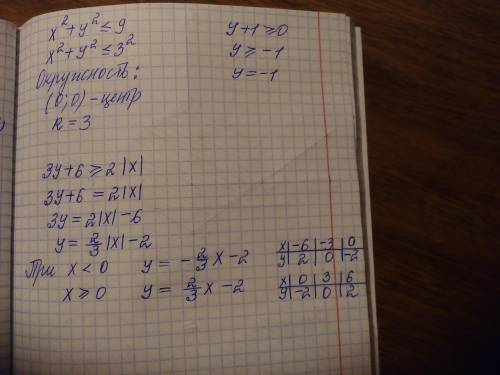 x² + y² ≤ 9
x² + y² ≤ 3²
Окружность:
(0;0) - центр
R = 3
y + 1 ≥ 0
y ≥ -1
y = -1
3y + 6 ≥ 2|x|
3y + 6 = 2|x|
3y = 2|x| - 6
y = 2/3|x| - 2
При x < 0 y = -2/3x - 2
x ≥ 0 y = 2/3x - 2
x | -6 | -3 | 0
y | 2 | 0 | -2
x | 0 | 3 | 6
y | -2 | 0 | 2